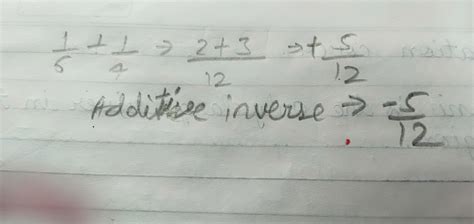 1/6 + 1/4 → 2+3/12 → + 5/12
Additive inverse → -5/12